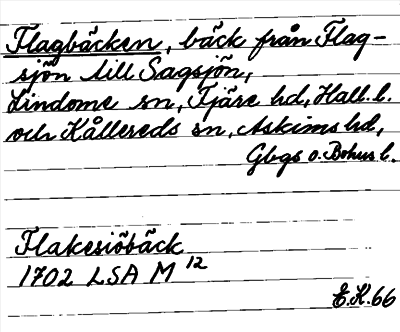 Flagbäcken, bäck från Flag-
sjön till Sagsjön,
Lindome sn, Fjäre hd, Hall. l.
och Kållereds sn, Askims hd,
Gbgs o. Bohus l.
Flakesiöbäck
1702 LSA M 12
E.K. 66